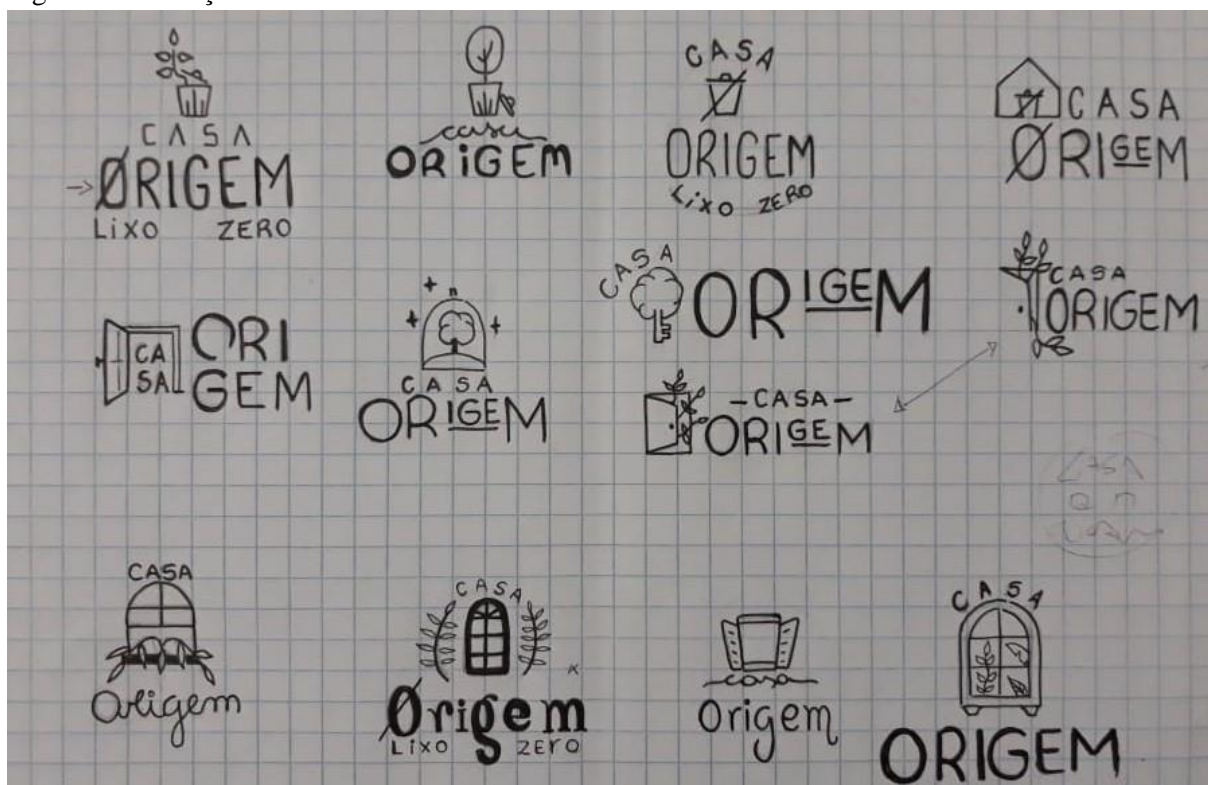 CASA
ØRIGEM
LiXO ZERO
casa
ORiGEM
CASA
ORIGEM
Lixo ZERO
CASA
ØRIGEM
CA
SA
ORI
GEM
CASA
ORIGEM
CASA
ORIGEM
CASA
ORIGEM
–CASA–
ORIGEM
CASA
Origem
CASA
Origem
Lixo zero
casa
Origem
CASA
ORIGEM